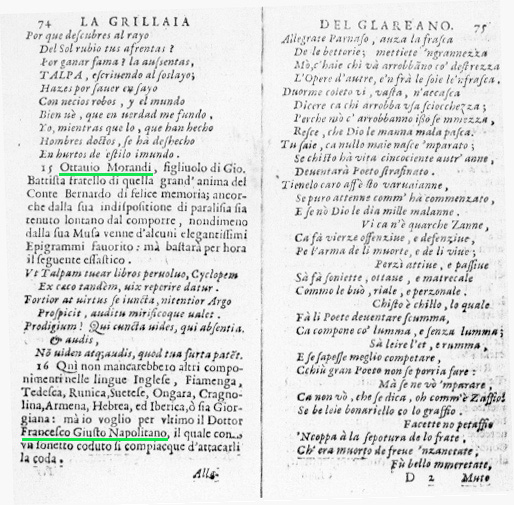 74 LA GRILLAIA
Por que descubres al rayo
Del Sol rubio tus afrentas?
Por ganar fama? la ausentas,
TALPA, escriuendo al soslayo;
Hazes por sauer ensayo
Con necios robos, y el mundo
Bien uè, que en uerdad me fundo,
Yo, mientras que lo, que han hecho
Hombres doctos, se hà deshecho
En hurtos de estilo imundo.
15 Ottauio Morandi, figliuolo di Gio.
Battista fratello di quella grand' anima del
Conte Bernardo di felice memoria; ancor-
che dalla sua indispositione di paralisia sia
tenuto lontano dal comporre, nondimeno
dalla sua Musa venne d'alcuni elegantissimi
Epigrammi fauorito: mà bastarà per hora
il seguente essastico.
Vt Talpam tuear libros peruoluo, Cyclopem
Ex cæco tandem, uix reperire datur.
Fortior at uirtus se iuncta, nitentior Argo
Prospicit, auditu mirificoque ualet.
Prodigium! Qui cuncta uides, qui absentia.
& audis,
Nõ uiden atq; audis, quod tua furta patẽt.
16 Quì non mancarebbero altri compo-
nimenti nelle lingue Inglese, Fiamenga,
Tedesca, Runica, Suetese, Ongara, Cragno-
lina, Armena, Hebrea, ed Iberica, ò sia Gior-
giana: mà io voglio per vltimo il Dottor
Francesco Giusto Napolitano, il quale con
vn sonetto coduto si compiacque d'attacarli
la coda.
Alle-
DEL GLAREANO. 75
Allegrate Parnaso, auza la frasca
De le bettorie; mettiete 'ngrannezza
Mò, c'haie chi và arrobbãno co' destrezza
L'Opere d'autre, e'n frà le soie le'nfrasca.
Duorme coleto vi, vasta, n'accasca
Dicere ca chi arrobba vsa sciocchezza;
Perche mò c' arrobbanno isso se mmezza,
Resce, che Dio le manna mala pasca.
Tu saie, ca nullo maie nasce 'mparato;
Se chisto hà vita cincociente autr' anne,
Deuentarà Poeto strafinato.
Tienelo caro affè sto varuaianne,
Se puro attenne comm' hà commenzato,
E se nò Dio le dia mille malanne.
Vi ca n'è quarche Zanne,
Ca fà vierze offenziue, e defenziue,
Pe l'arma de li muorte, e de li viue;
Perzi attiue, e passiue
Sà fà soniette, ottaue, e matrecale
Commo le buò, riale, e perzonale.
Chisto è chillo, lo quale
Fà li Poete deuentare scumma,
Ca compone co' lumma, e senza lumma;
Sà leire l'et, e rumma,
E se sapesse meglio competare,
Cchiù gran Poeto non se porria fare:
Mà se ne vò 'mparare,
Ca non vò, che se dica, oh comm'è Zaffio!
Se be loie bonariello co lo graffio.
Facette no petaffio
'Ncoppa à la sepotura de lo frate,
Ch' era muorto de freue 'nzanetate,
Fù bello mmeretate,
D 2 Muto